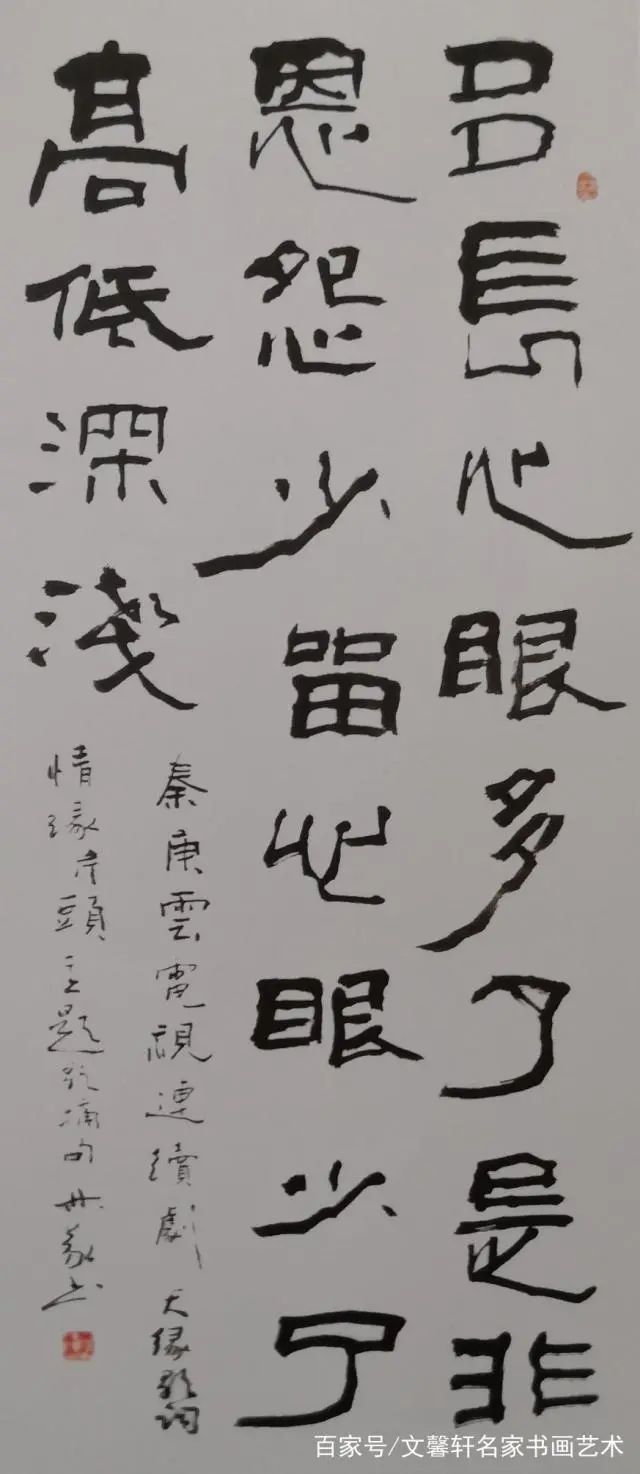 多長心眼多了是非
恩怨少留心眼少了
高低深淺
秦庚雲電視連續劇
情緣片頭主題歌摘句
百家号/文馨轩名家书画艺术